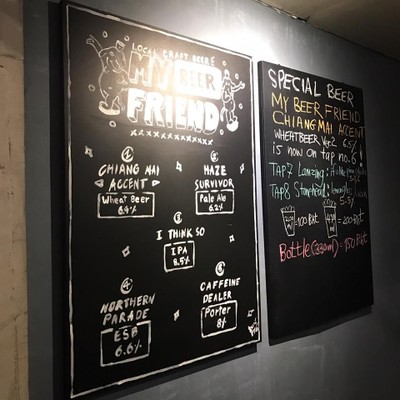 LOCAL CRAFT BEER
MY BEER
FRIEND
1
CHIANG MAI
ACCENT
Wheat Beer
6.4%
2
HAZE
SURVIVOR
Pale Ale
6.2%
3
I THINK SO
IPA
8.5%
4
NORTHERN
PARADE
ESB
6.6%
CAFFEINE
DEALER
Porter
8%
SPECIAL BEER
MY BEER FRIEND
CHIANG MAI ACCENT
WHEATBEER Ver.2 6.5%
is now on tap no.6!
TAP7
TAP8
5.5%
=100 Bht
=200 Bht
Bottle(330ml)=150 Bht